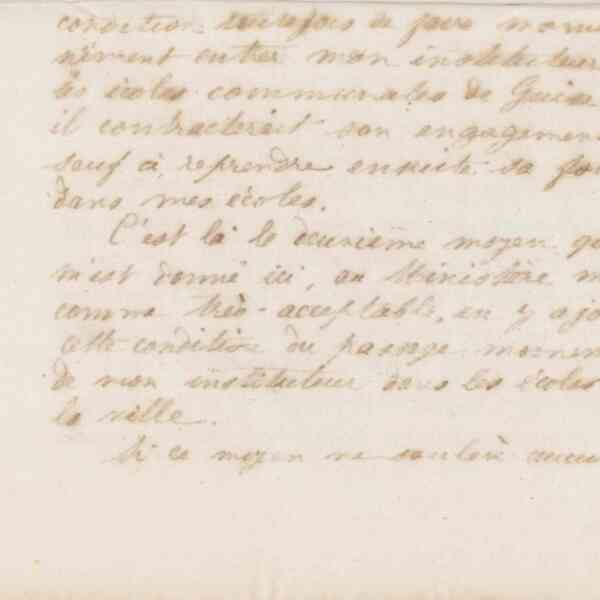 condition toutefois de faire momen
nément entrer mon instituteur
les écoles communales de Guise
il contracterait son engagement
sauf à reprendre ensuite sa fo
dans mes écoles.
C'est là le deuxième moyen qu
m'est donné ici, au Ministère
comme très-acceptable, en y ajo
cette condition du passage momen
de mon instituteur dans les écoles
la ville.
Si ce moyen ne soulève aucun